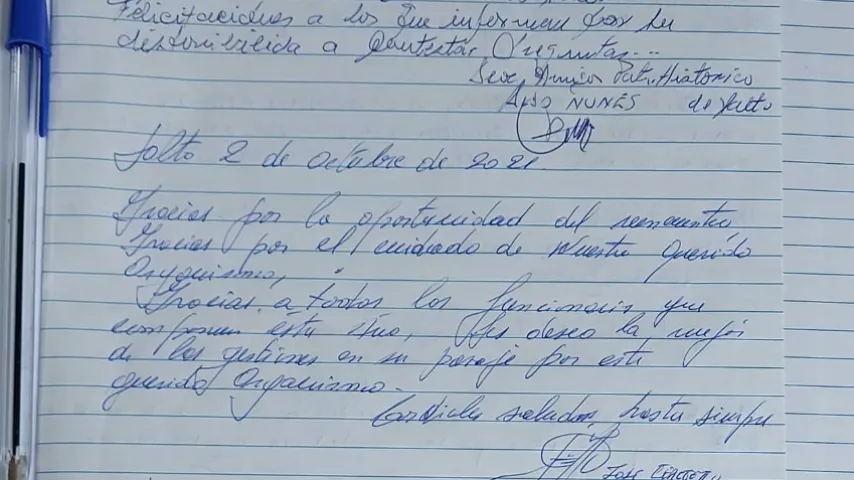 Felicitaciones a los que informan por su
disponibilida a Contestar Preguntas...
Amigos Patr. Historico
Aldo NUNES de Salto
Salto 2 de octubre de 2021.
Gracias por la oportunidad del reencuentro
Gracias por el cuidado de nuestro querido
Organismo,
Gracias a todos los funcionarios que
componen este sitio, les deseo la mejor
de las gestiones en su pasaje por este
querido Organismo.
Cordiales saludos, hasta siempre
JOSE